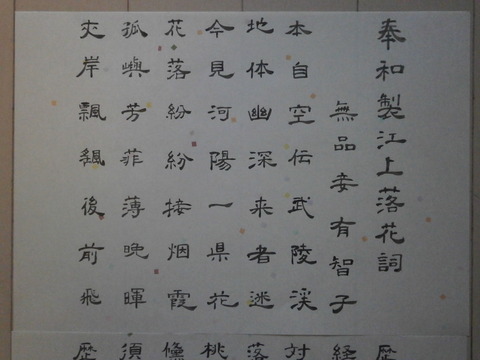 奉和製江上落花詞 歴
無品妾有智子 経
本自空伝武陵渓 対
地体幽深来者迷 落
今見河陽一県花 桃
花落紛紛接烟霞
孤嶼芳菲薄晩暉 須
夾岸飄颻後前飛 歴